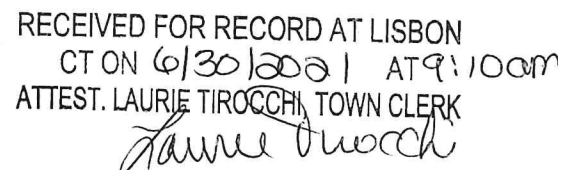 RECEIVED FOR RECORD AT LISBON
CT ON 6/30/2021 AT 9:10am
ATTEST. LAURIE TIROCCHI, TOWN CLERK
Laurie Tirocchi